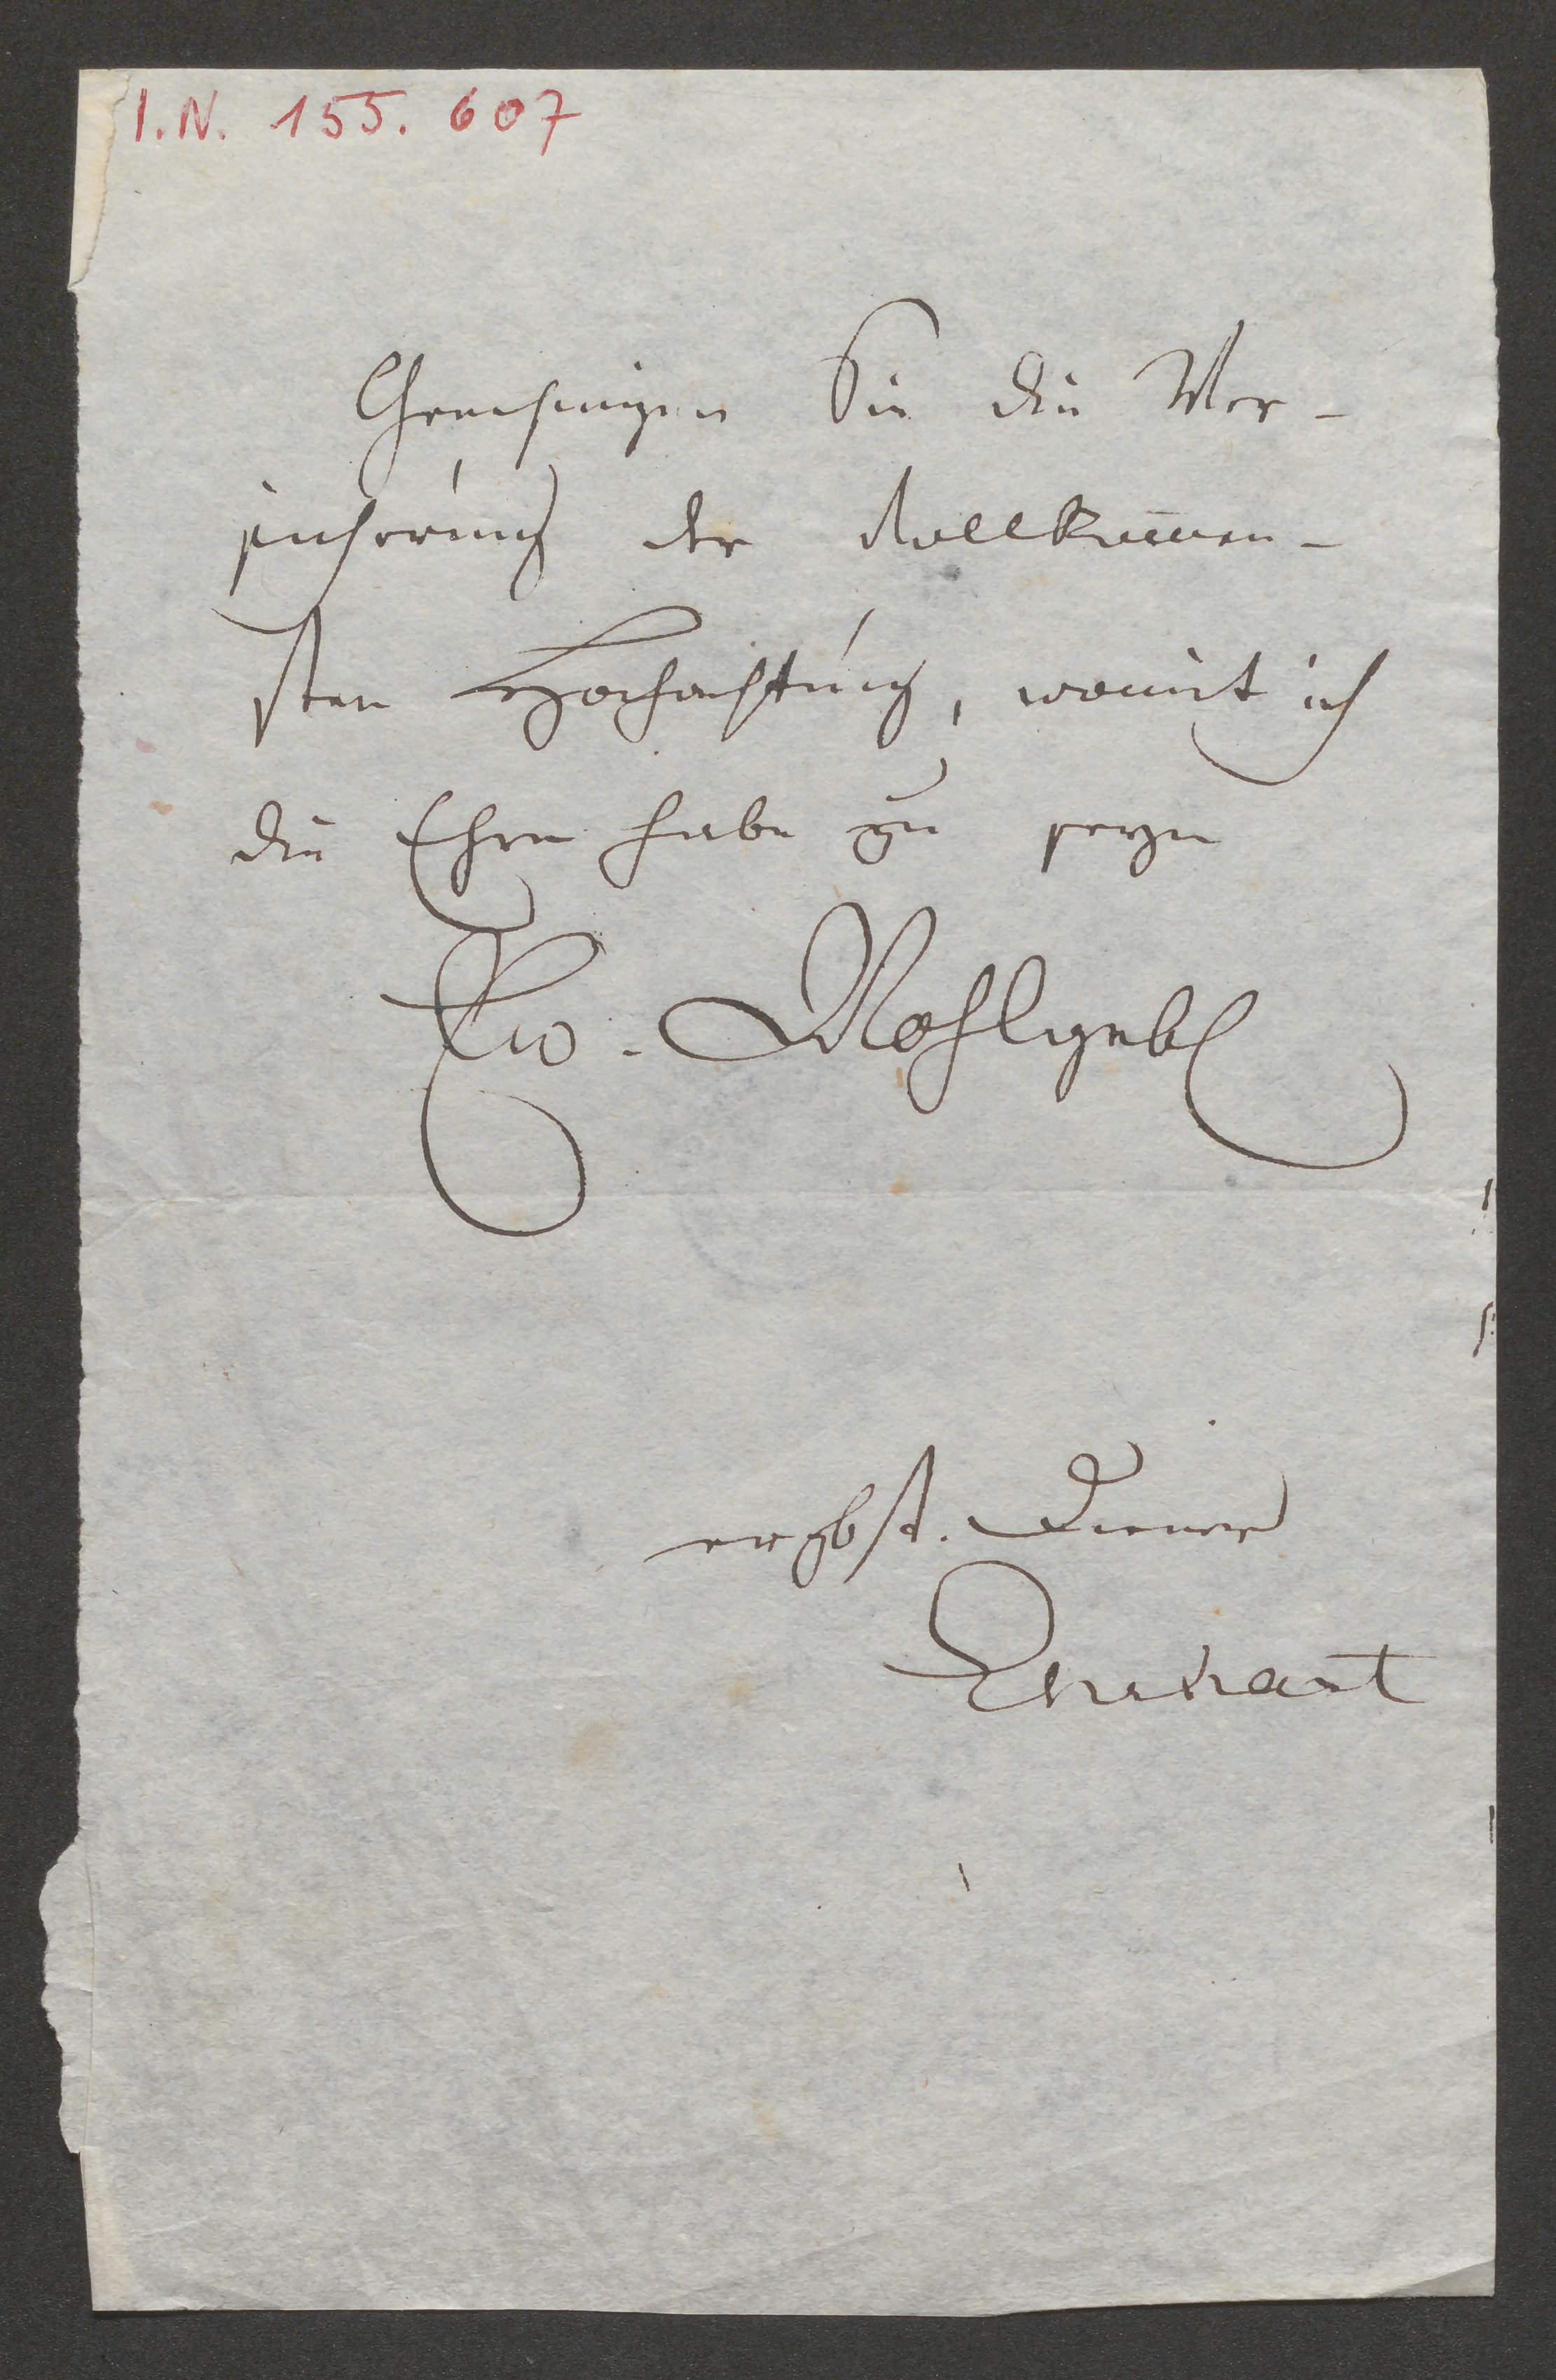 I.N. 155.607
Genehmigen Sie die Ver-
sicherung der vollkom̄en-
sten Hochachtung, womit ich
die Ehre habe zu seyn
Ew. Wohlgeb
ergbst. Diener